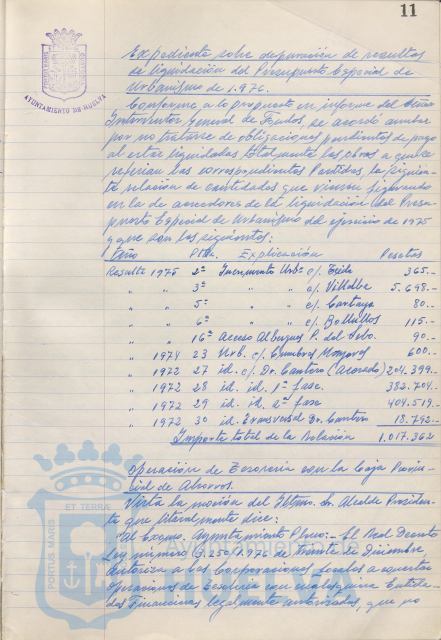 11
AYUNTAMIENTO DE HUELVA
Expediente sobre depuración de resultas
de liquidación del Presupuesto Especial de
Urbanismo de 1.976.
Conforme a lo propuesto en informe del Señor
Interventor General de Fondos, se acordó anular
por no tratarse de obligaciones pendientes de pago
al estar liquidadas totalmente las obras a que se
referian las correspondientes Partidas, la siguien-
te relación de cantidades que vienen figurando
en la de acreedores de la liquidación del Presu-
puesto Especial de Urbanismo del ejercicio de 1975
y que son las siguientes:
Año Ptda. Explicación Pesetas
Resulta 1975 2ª Incremento Urbº c/. Tejila 365.-
" " 3ª " " c/. Villalba 5.698.-
" " 5ª " " c/. Cartaya 80.-
" " 6ª " " c/. Bollullos 115.-
" " 16ª Acceso Albergues P. del Sebo. 90.-
" 1974 23 Urb. c/. Cumbres Mayores 600.-
" 1972 27 id. c/. Dr. Cantero (Acerado) 204.399.-
" 1972 28 id. id. 1ª fase. 382.704.-
" 1972 29 id. id. 2ª fase 404.519.-
" 1972 30 id. Transversal Dr. Cantero 18.792.-
Importe total de la Relación 1.017.362
Operación de Tesorería con la Caja Provin-
cial de Ahorros.
Vista la moción del Iltmo. Sr. Alcalde Presiden-
te que literalmente dice:
"Al Excmo. Ayuntamiento Pleno:- El Real Decreto
Ley número 3.250/1.976 de treinta de Diciembre,
autoriza a las Corporaciones locales a concertar
operaciones de Tesorería con cualesquiera Entida-
des Financieras legalmente autorizadas, que no
PORTUS MARIS ET TERRAE
HUELVA